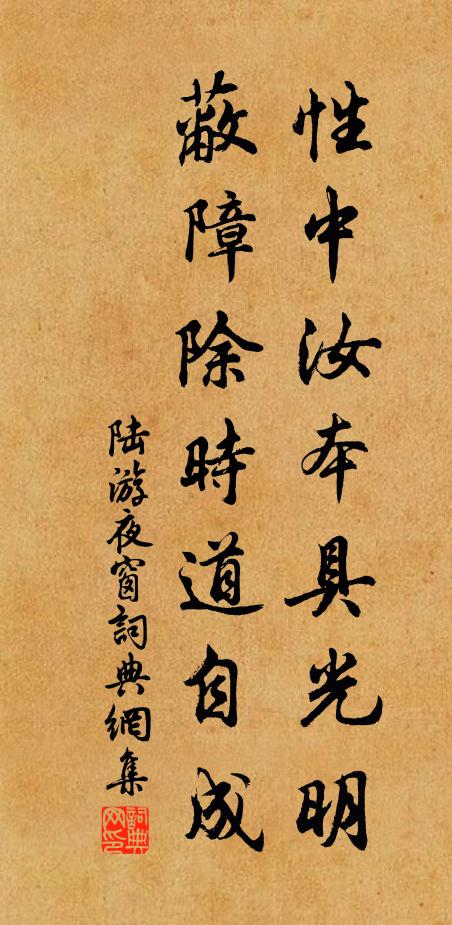 性中汝本具光明
蔽障除時道自成
陆游夜窗詞典網集
詞典网印